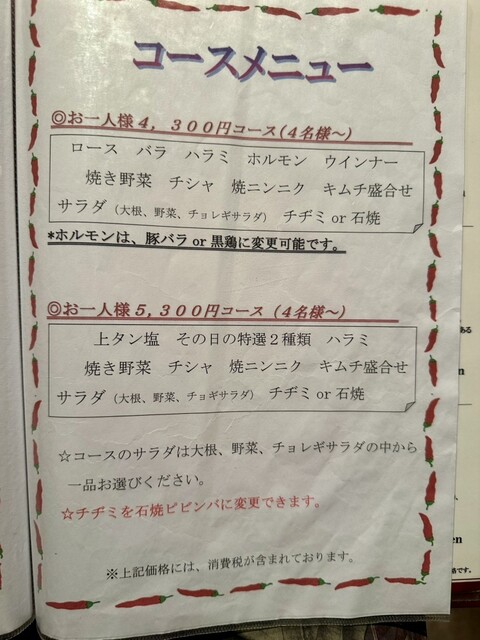 コースメニュー
◎お一人様４，３００円コース(４名様～)
ロース バラ ハラミ ホルモン ウインナー
焼き野菜 チシャ 焼ニンニク キムチ盛合せ
サラダ（大根、野菜、チョレギサラダ） チヂミ or 石焼
*ホルモンは、豚バラ or 黒鶏に変更可能です。
◎お一人様５,３００円コース（４名様～）
上タン塩 その日の特選２種類 ハラミ
焼き野菜 チシャ 焼ニンニク キムチ盛合せ
サラダ（大根、野菜、チョギサラダ） チヂミ or 石焼
☆コースのサラダは大根、野菜、チョレギサラダの中から
一品お選びください。
☆チヂミを石焼ビビンバに変更できます。
※上記価格には、消費税が含まれております。